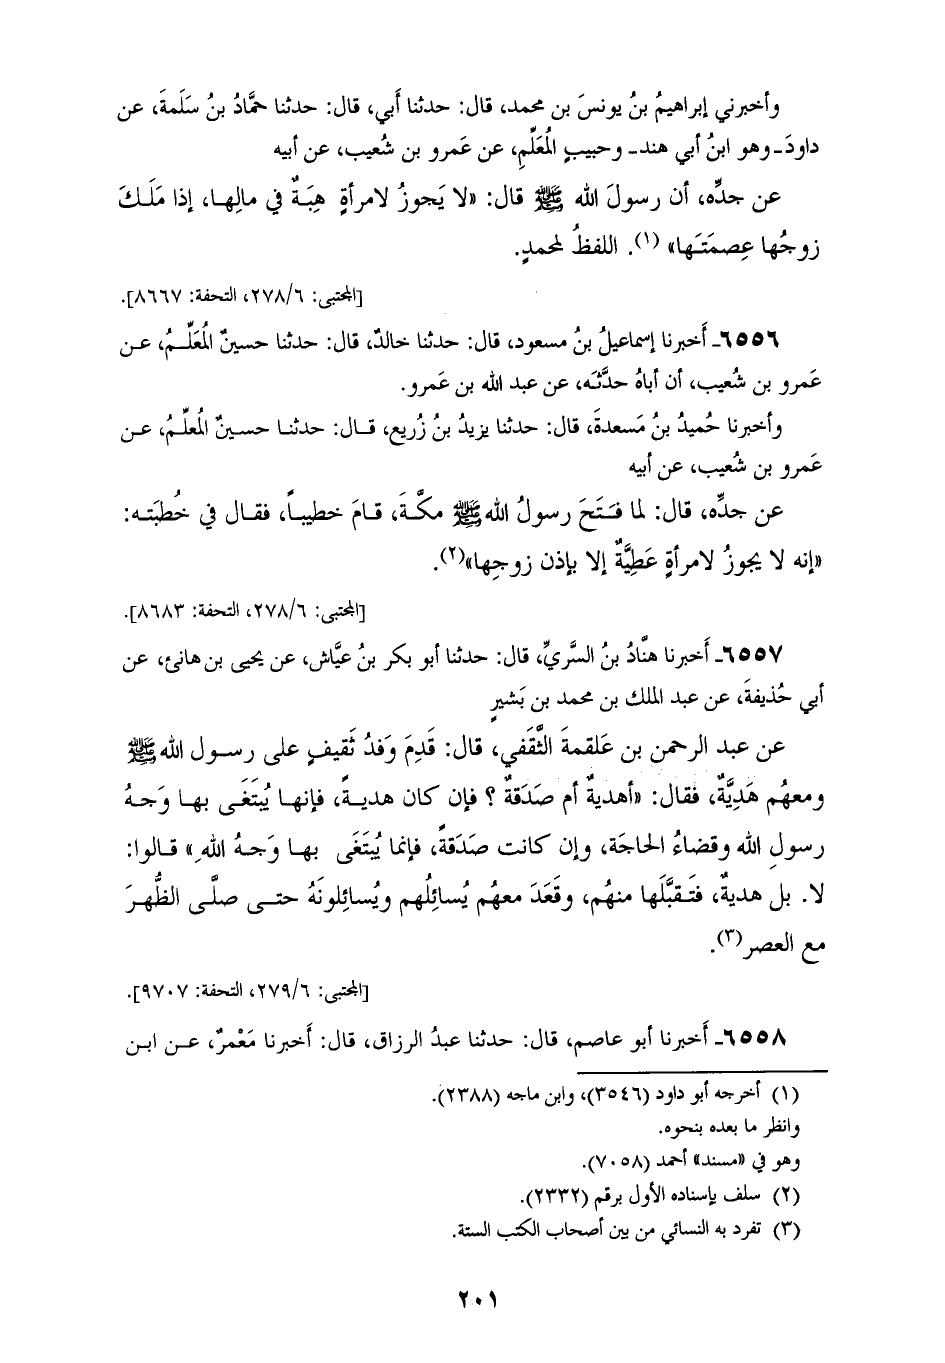 وأخبرني إبراهيمُ بنُ يونسَ بن محمد، قال: حدثنا أَبي، قال: حدثنا حمَّادُ بنُ سَلَمةَ، عن
داودَ ـ وهو ابنُ أبي هند ـ وحبيبٍ المُعَلِّمِ، عن عَمرو بن شُعيب، عن أبيه
عن جدِّه، أن رسولَ الله ﷺ قال: «لا يَجوزُ لامرأةٍ هِبَةٌ في مالِها، إذا مَلَكَ
زوجُها عِصمَتَها» (١). اللفظُ لمحمدٍ.
[المجتبى: ٢٧٨/٦، التحفة: ٨٦٦٧].
٦٥٥٦ـ أَخبرنا إسماعيلُ بنُ مسعود، قال: حدثنا خالدٌ، قال: حدثنا حسينٌ المُعَلِّمُ، عن
عَمرو بن شُعيب، أن أباهُ حدَّثَه، عن عبد الله بن عَمرو.
وأخبرنا حُميدُ بنُ مَسعدةَ، قال: حدثنا يزيدُ بنُ زُريع، قال: حدثنا حسينٌ المُعلِّمُ، عن
عَمرو بن شُعيب، عن أبيه
عن جدِّه، قال: لما فَتَحَ رسولُ الله ﷺ مكَّةَ، قامَ خطيباً، فقال في خُطبَته:
«إنه لا يجوزُ لامرأةٍ عَطِيَّةٌ إلا بإذن زوجِها»(٢).
[المجتبى: ٢٧٨/٦، التحفة: ٨٦٨٣].
٦٥٥٧ـ أَخبرنا هنَّادُ بنُ السَّريِّ، قال: حدثنا أبو بكر بنُ عيَّاش، عن يحيى بن هانئ، عن
أبي حُذيفةَ، عن عبد الملك بن محمد بن بَشيرٍ
عن عبد الرحمن بن عَلقمةَ الثَّقَفي، قال: قَدِمَ وَفدُ ثَقيفٍ على رسول الله ﷺ
ومعهُم هَدِيَّةٌ، فقال: «أهديةٌ أم صَدَقةٌ ؟ فإن كان هديةً، فإنها يُبتَغَى بها وَجهُ
رسولِ الله وقضاءُ الحاجَة، وإن كانت صَدَقةً، فإنما يُبتَغَى بها وَجهُ اللهِ» قالوا:
لا. بل هديةٌ، فتَقبَّلَها منهُم، وقَعَدَ معهُم يُسائِلُهم ويُسائِلونَهُ حتى صلَّى الظُّهرَ
مع العصر(٣).
[المجتبى: ٢٧٩/٦، التحفة: ٩٧٠٧].
٦٥٥٨ـ أَخبرنا أبو عاصم، قال: حدثنا عبدُ الرزاق، قال: أَخبرنا مَعْمرٌ، عن ابن
(١) أخرجه أبو داود (٣٥٤٦)، وابن ماجه (٢٣٨٨).
وانظر ما بعده بنحوه.
وهو في «مسند» أحمد (٧٠٥٨).
(٢) سلف بإسناده الأول برقم (٢٣٣٢).
(٣) تفرد به النسائي من بين أصحاب الكتب الستة.
٢٠١